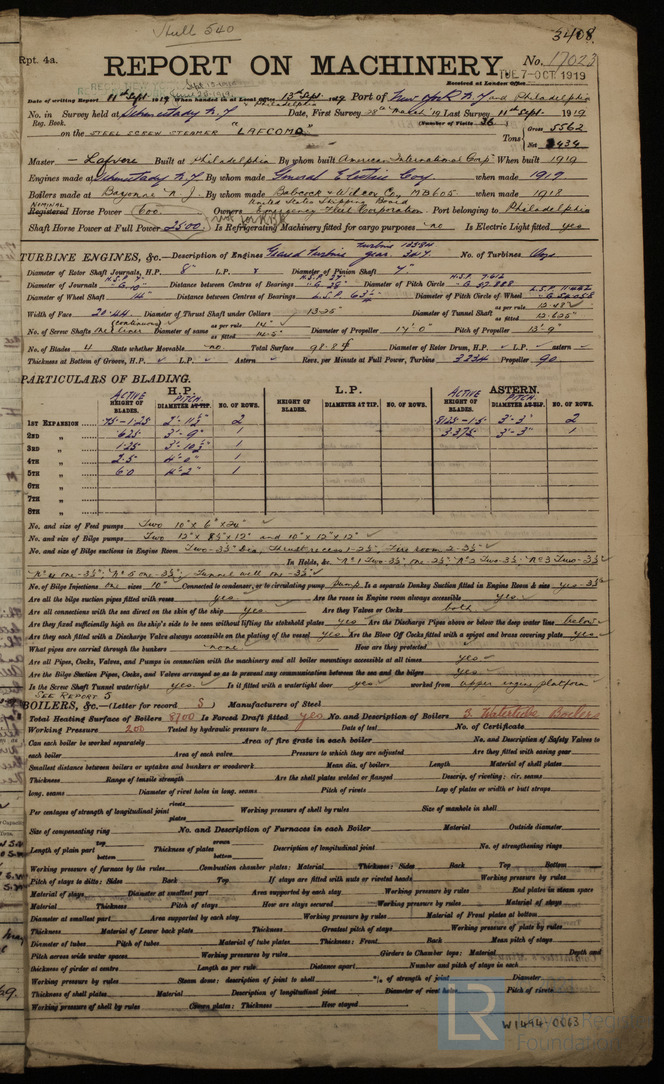 Hull 540
3408
Rpt. 4a.
REPORT ON MACHINERY
No. 17023
Received at London Office
TUE 7-OCT 1919
Date of writing Report 11th Sept 1919 When handed in at Local Office 13th Sept. 1919 Port of New York N.Y and Philadelphia
No. in Reg. Book. Survey held at Schenectady N.Y Philadelphia Date, First Survey 28th March 19 Last Survey 11th Sept. 1919
(Number of Visits 36)
on the STEEL SCREW STEAMER "LAFCOMO" Tons Gross 5562 Net 3434
Master - Lafvere Built at Philadelphia By whom built American International Corp When built 1919
Engines made at Schenectady N.Y By whom made General Electric Coy when made 1919
Boilers made at Bayonne N.J. By whom made Babcock & Wilcox Co, when made 1918
United States Shipping Board
NOMINAL Registered Horse Power 600. Owners Emergency Fleet Corporation Port belonging to Philadelphia
Shaft Horse Power at Full Power 2500 Is Refrigerating Machinery fitted for cargo purposes no Is Electric Light fitted yes
TURBINE ENGINES, &c.—Description of Engines Geared turbine No. of Turbines One
Diameter of Rotor Shaft Journals, H.P. 8" L.P. Diameter of Pinion Shaft 7"
Diameter of Journals Distance between Centres of Bearings Diameter of Pitch Circle
Diameter of Wheel Shaft 14" Distance between Centres of Bearings L.S.P. Diameter of Pitch Circle of Wheel
Width of Face 20.44 Diameter of Thrust Shaft under Collars 13.25 Diameter of Tunnel Shaft as per rule 12.48 as fitted 12.625
No. of Screw Shafts One Diameter of same as per rule 14" as fitted 14.5" Diameter of Propeller 17'.0" Pitch of Propeller 13'-9"
No. of Blades 4 State whether Moveable no. Total Surface Diameter of Rotor Drum, H.P. L.P. astern
Thickness at Bottom of Groove, H.P. L.P. Astern Revs. per Minute at Full Power, Turbine 3234 Propeller 90
PARTICULARS OF BLADING.
H.P. L.P. ASTERN.
ACTIVE HEIGHT OF BLADES. PITCH DIAMETER AT TIP. NO. OF ROWS. HEIGHT OF BLADES. DIAMETER AT TIP. NO. OF ROWS. ACTIVE HEIGHT OF BLADES. PITCH DIAMETER AT TIP. NO. OF ROWS.
1ST EXPANSION .75-1.25 2'-11½" 2 .8125-1.5 3'-3" 2
2ND " .625 3'-9" 1 3.375 3'-3" 1
3RD " 1.25 3'-10½" 1
4TH " 2.5 4'-0" 1
5TH " 6.0 4'-2" 1
6TH "
7TH "
8TH "
No. and size of Feed pumps Two 10" x 6" x 24"
No. and size of Bilge pumps Two 12" x 8½" x 12" and 10" x 12" x 12"
No. and size of Bilge suctions in Engine Room Two-3½" dia, Thrust recess 1-2½", Fire room 2-3½"
In Holds, &c. No 1 Two-3½", one-2½" No 2 Two-3½" No 3 Two-3½"
No 4 one-3½", No 5 one-3½", Tunnel well one-3½"
No. of Bilge Injections one sizes 10" Connected to condenser, or to circulating pump Pump Is a separate Donkey Suction fitted in Engine Room & size yes 3½"
Are all the bilge suction pipes fitted with roses yes Are the roses in Engine room always accessible yes
Are all connections with the sea direct on the skin of the ship yes Are they Valves or Cocks both
Are they fixed sufficiently high on the ship's side to be seen without lifting the stokehold plates yes Are the Discharge Pipes above or below the deep water line below
Are they each fitted with a Discharge Valve always accessible on the plating of the vessel yes Are the Blow Off Cocks fitted with a spigot and brass covering plate yes
What pipes are carried through the bunkers none How are they protected
Are all Pipes, Cocks, Valves, and Pumps in connection with the machinery and all boiler mountings accessible at all times yes
Are the Bilge Suction Pipes, Cocks, and Valves arranged so as to prevent any communication between the sea and the bilges yes
Is the Screw Shaft Tunnel watertight yes Is it fitted with a watertight door yes worked from upper engine platform
SEE REPORT 5
BOILERS, &c.—(Letter for record S) Manufacturers of Steel
Total Heating Surface of Boilers 8700 Is Forced Draft fitted yes No. and Description of Boilers 3 Watertube Boilers
Working Pressure 200 Tested by hydraulic pressure to Date of test No. of Certificate
Can each boiler be worked separately Area of fire grate in each boiler No. and Description of Safety Valves to
each boiler Area of each valve Pressure to which they are adjusted Are they fitted with easing gear
Smallest distance between boilers or uptakes and bunkers or woodwork Mean dia. of boilers Length Material of shell plates
Thickness Range of tensile strength Are the shell plates welded or flanged Descrip. of riveting: cir. seams
long. seams Diameter of rivet holes in long. seams Pitch of rivets Lap of plates or width of butt straps
Per centages of strength of longitudinal joint rivets plates Working pressure of shell by rules Size of manhole in shell
Size of compensating ring No. and Description of Furnaces in each Boiler Material Outside diameter
Length of plain part top bottom Thickness of plates crown bottom Description of longitudinal joint No. of strengthening rings
Working pressure of furnace by the rules Combustion chamber plates: Material Thickness: Sides Back Top Bottom
Pitch of stays to ditto: Sides Back Top If stays are fitted with nuts or riveted heads Working pressure by rules
Material of stays Diameter at smallest part Area supported by each stay Working pressure by rules End plates in steam space
Material Thickness Pitch of stays How are stays secured Working pressure by rules Material of stays
Diameter at smallest part Area supported by each stay Working pressure by rules Material of Front plates at bottom
Thickness Material of Lower back plate Thickness Greatest pitch of stays Working pressure of plate by rules
Diameter of tubes Pitch of tubes Material of tube plates Thickness: Front Back Mean pitch of stays
Pitch across wide water spaces Working pressures by rules Girders to Chamber tops: Material Depth and
thickness of girder at centre Length as per rule Distance apart Number and pitch of stays in each
Working pressure by rules Steam dome: description of joint to shell % of strength of joint Diameter
Thickness of shell plates Material Description of longitudinal joint Diameter of rivet holes Pitch of rivets
Working pressure of shell by rules Crown plates: Thickness How stayed
LR
Foundation
W1494-0063